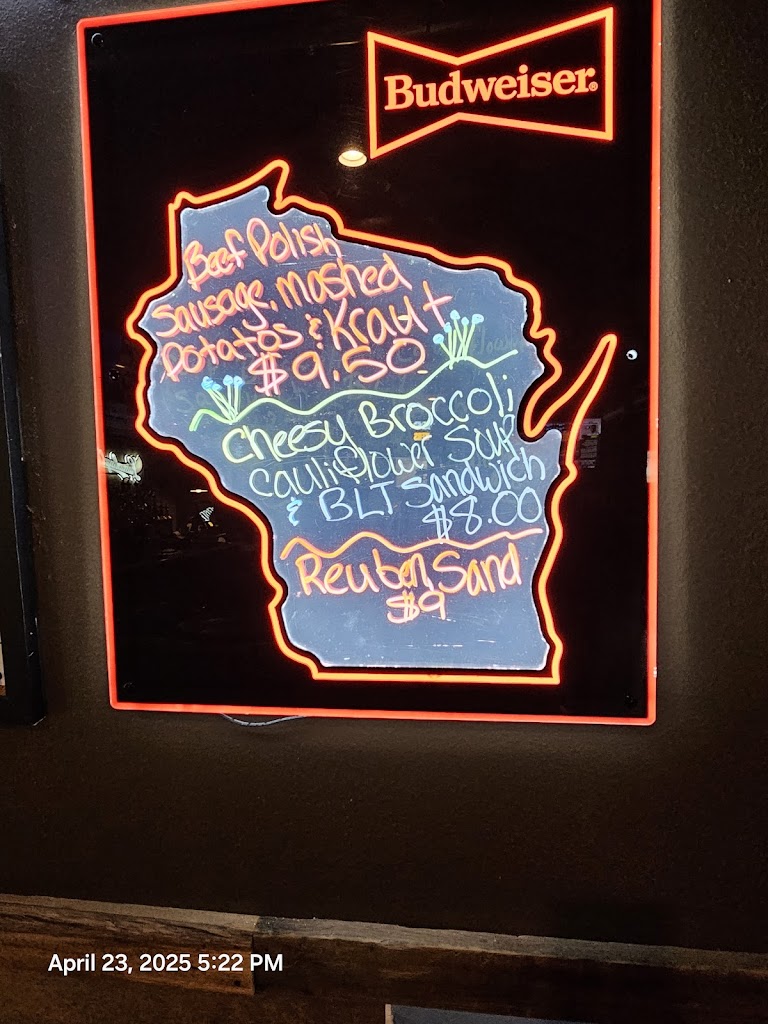 Budweiser®
Beef Polish
Sausage, mashed
Potatos & Kraut
$9.50
Cheesy Broccoli
Cauliflower Soup
& BLT Sandwich
$8.00
Reuben Sand
$9
April 23, 2025 5:22 PM